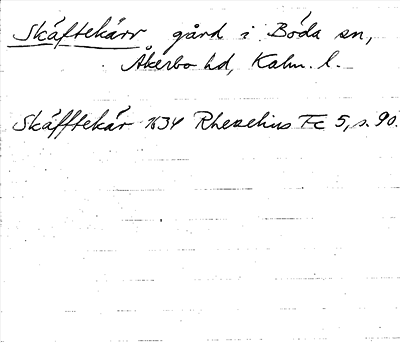 Skäftekärr gård i Böda sn,
Åkerbo hd, Kalm. l.
Skäfftekär 1634 Rhezelius Fc 5, s. 90.